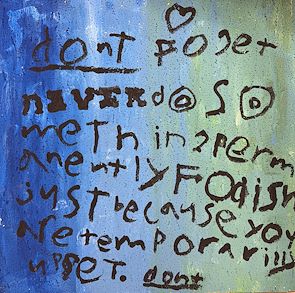 dont foget
NEVER do SO
methin? perm
anently Foolish
just because you
are temporarilly
upset. dont